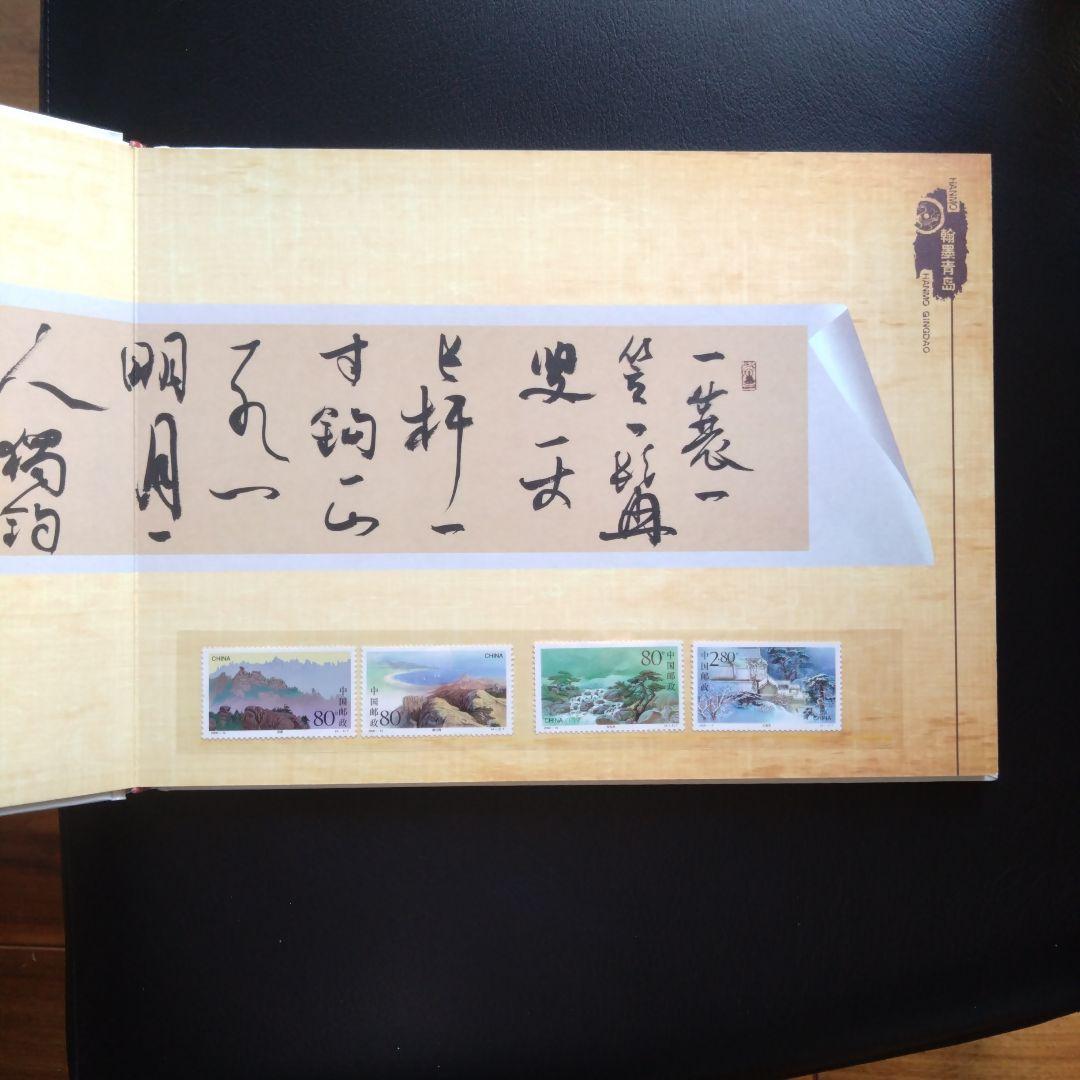 HANMO
翰墨青岛
HANMO QINGDAO
一蓑一
笠一髯
叟一丈
长杆一
寸鈎一山
一水一
明月一
人獨釣
CHINA
中国邮政
80分
CHINA
中国邮政
80分
80分
中国邮政
CHINA
2.80元
中国邮政
CHINA